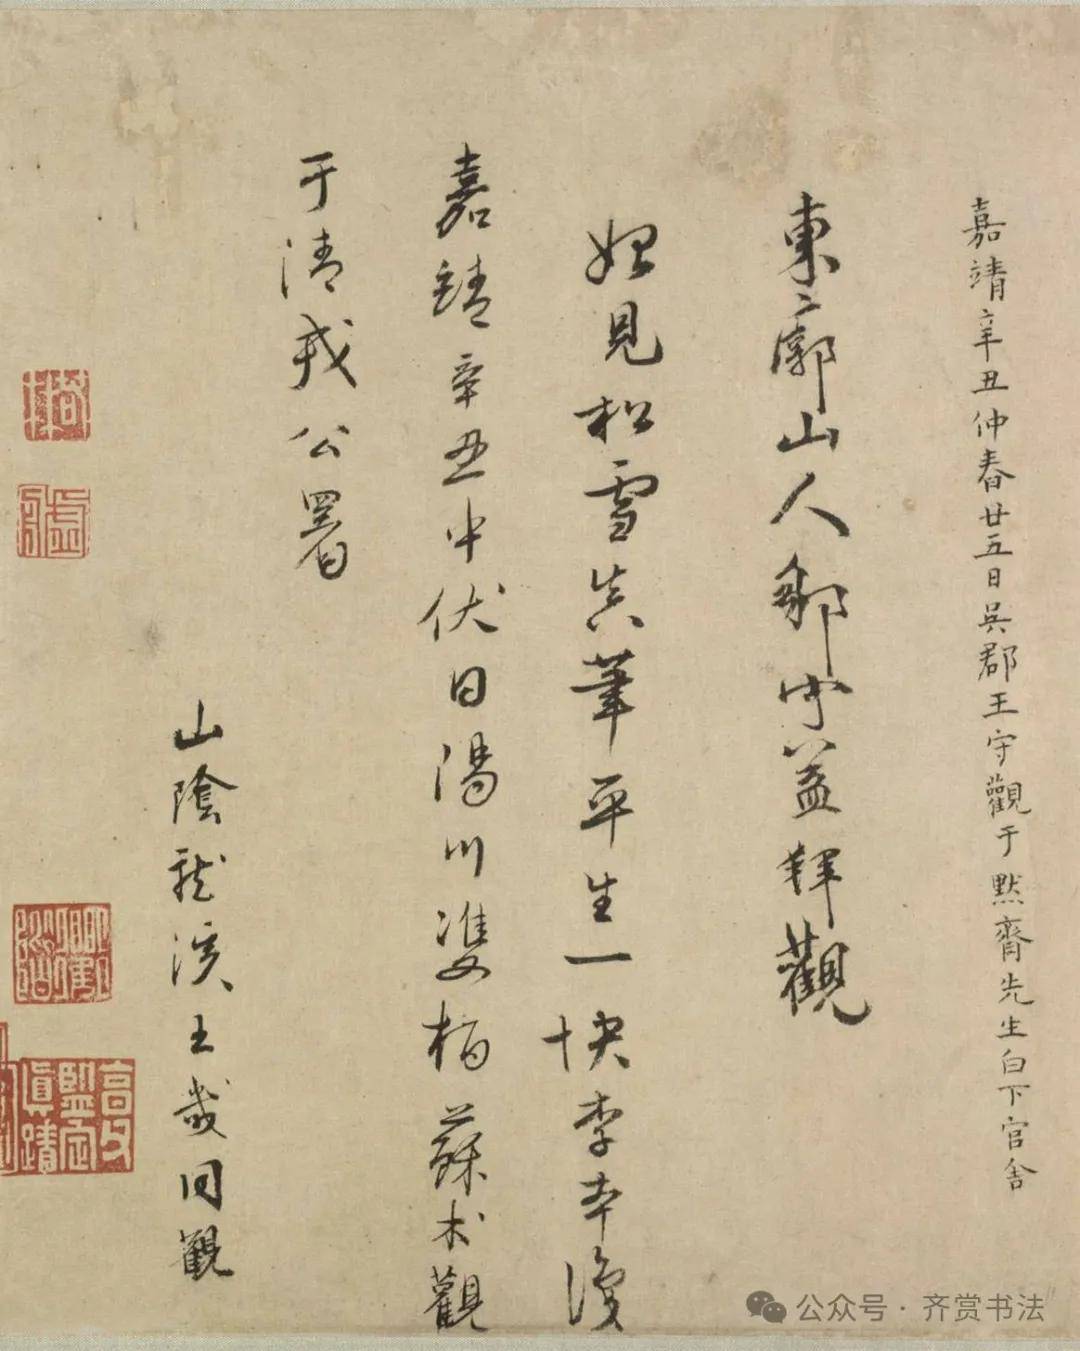 嘉靖辛丑仲春廿五日吳郡王守觀于默齋先生白下官舍
東廓山人鄒守益拜觀
始見松雪真筆平生一快李本謹
嘉靖辛丑中伏日陽川雙柏蘇术觀
于清戎公署
山陰龍溪王畿同觀
高士
監定
真蹟
公众号·齐赏书法